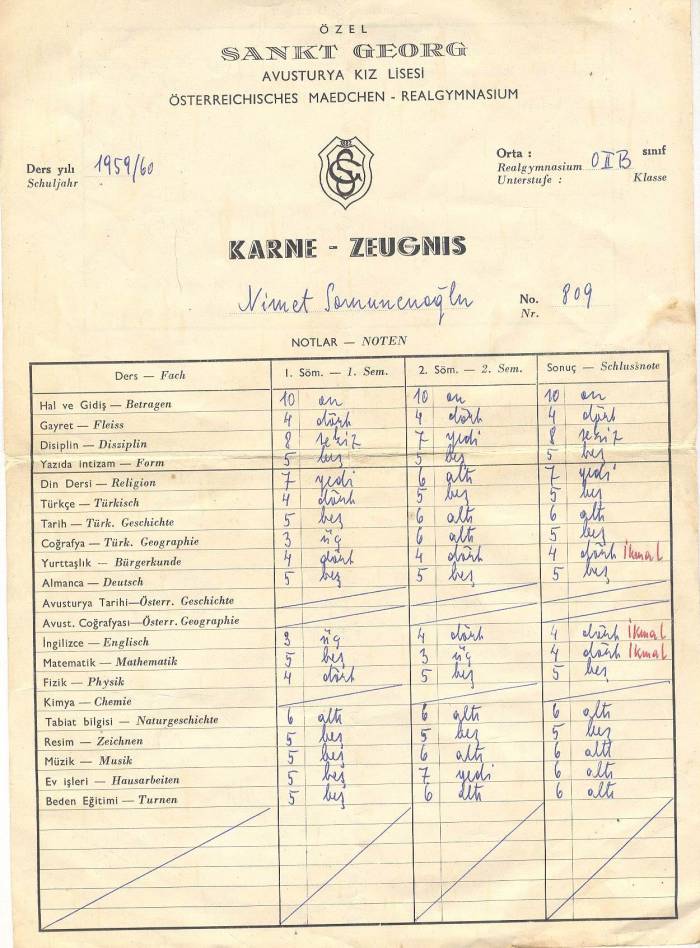 ÖZEL
SANKT GEORG
AVUSTURYA KIZ LİSESİ
ÖSTERREICHISCHES MAEDCHEN - REALGYMNASIUM
Ders yılı 1959/60
Schuljahr
Orta : sınıf
Realgymnasium O II B
Unterstufe : Klasse
KARNE - ZEUGNIS
Nimet Somuncuoğlu No. 809
Nr.
NOTLAR — NOTEN
Ders — Fach 1. Söm. — 1. Sem. 2. Söm. — 2. Sem. Sonuç — Schlussnote
Hal ve Gidiş — Betragen 10 on 10 on 10 on
Gayret — Fleiss 4 dört 4 dört 4 dört
Disiplin — Disziplin 8 sekiz 7 yedi 8 sekiz
Yazıda intizam — Form 5 beş 5 beş 5 beş
Din Dersi — Religion 7 yedi 6 altı 7 yedi
Türkçe — Türkisch 4 dört 5 beş 5 beş
Tarih — Türk. Geschichte 5 beş 6 altı 6 altı
Coğrafya — Türk. Geographie 3 üç 6 altı 5 beş
Yurttaşlık — Bürgerkunde 4 dört 4 dört 4 dört İkmal
Almanca — Deutsch 5 beş 5 beş 5 beş
Avusturya Tarihi—Österr. Geschichte
Avust. Coğrafyası—Österr. Geographie
İngilizce — Englisch 3 üç 4 dört 4 dört İkmal
Matematik — Mathematik 5 beş 3 üç 4 dört İkmal
Fizik — Physik 4 dört 5 beş 5 beş
Kimya — Chemie
Tabiat bilgisi — Naturgeschichte 6 altı 6 altı 6 altı
Resim — Zeichnen 5 beş 5 beş 5 beş
Müzik — Musik 5 beş 6 altı 6 altı
Ev işleri — Hausarbeiten 5 beş 7 yedi 6 altı
Beden Eğitimi — Turnen 5 beş 6 altı 6 altı